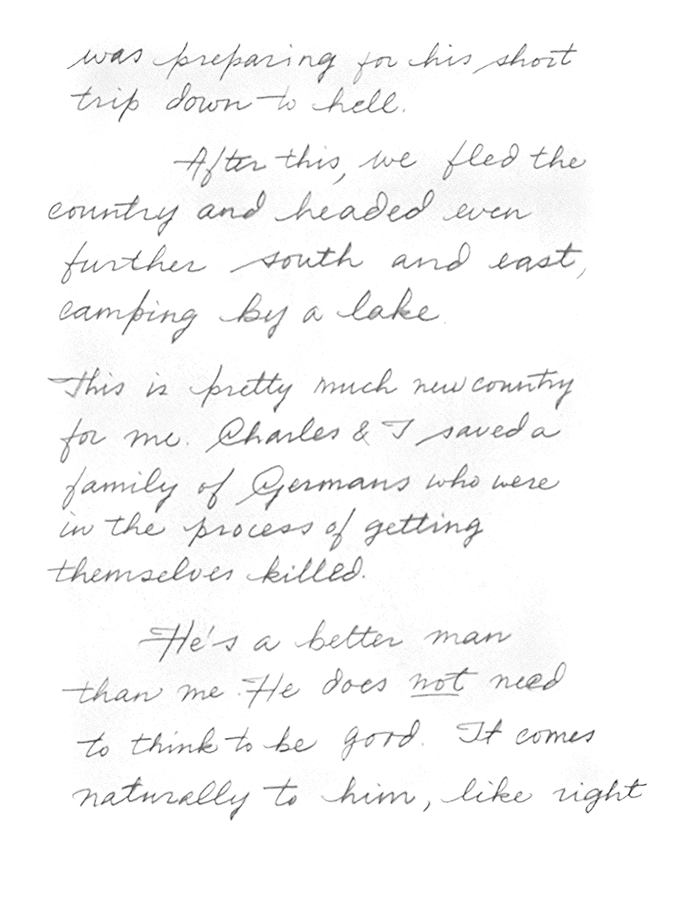 was preparing for his short
trip down to hell.
After this, we fled the
country and headed even
further south and east,
camping by a lake.
This is pretty much new country
for me. Charles & I saved a
family of Germans who were
in the process of getting
themselves killed.
He's a better man
than me. He does not need
to think to be good. It comes
naturally to him, like right